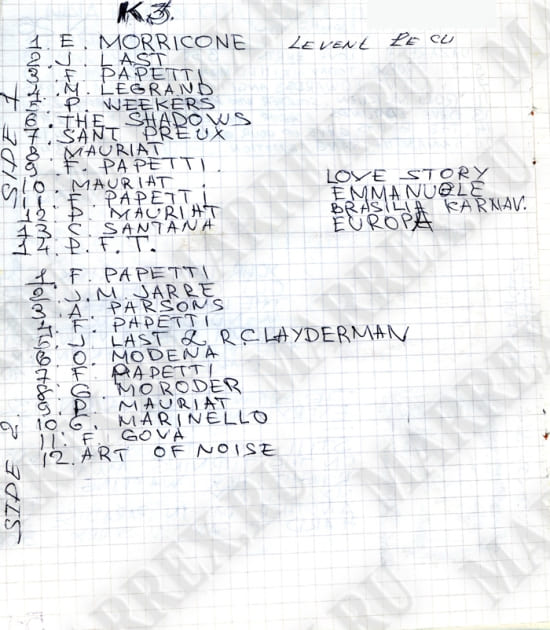 K3.
1. E. MORRICONE
2. J. LAST
3. F. PAPETTI
4. M. LEGRAND
5. P. WEEKERS
6. THE SHADOWS
7. SANT PREUX
8. MAURIAT
9. F. PAPETTI.
10. MAURIAT.
11. F. PAPETTI
12 P. MAURIAT
13 C. SANTANA
14 P. F. T.
SIDE 1
LOVE STORY
EMMANUELE
BRASILIA KARNAV.
EUROPA
1. F. PAPETTI
2. J. M. JARRE
3. A. PARSONS
4. F. PAPETTI
5. J. LAST & R. CLAYDERMAN
6. O. MODENA
7. F. PAPETTI
8. G. MORODER
9. P. MAURIAT
10 G. MARINELLO
11. F. GOYA
12. ART OF NOISE
SIDE 2.
MARREX.RU